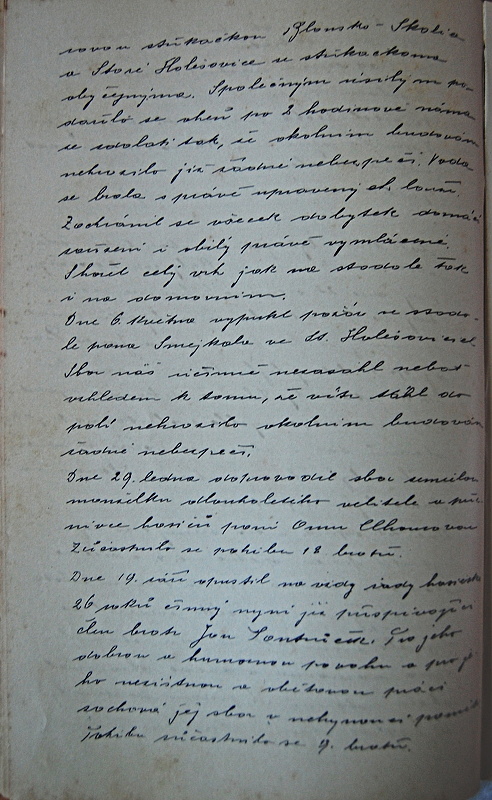 a Staré Holešovice se stříkačkama
obyčejnýma. Společným úsilým po-
dařilo se oheň po 2 hodinové náma
se zdolati tak, že okolním budovám
nehrozilo již žádné nebezpečí. Voda
se brala z právě upravených louží
Zachránil se všecek dobytek domácí
zařízení i obilý právě vymlácené.
Shořel celý vrh jak na stodole tak
i na domovním.
Dne 6. května vypukl požár ve stodo-
le pana Smejkala ve St. Holešovicích.
Sbor náš účinně nezasáhl neboť
vzhledem k tomu, že vítr táhl do
polí nehrozilo okolním budovám
žádné nebezpečí.
Dne 29. ledna doprovodil sbor zemřelou
manželku dlouholetého velitele a
pani Annu
Zúčastnilo se pohřbu 18 bratrů.
Dne 19. září opustil na vždy řady hasičské
26 roků činný nyní již přispívající
člen bratr Jan Pro jeho
dobrou a humornou povahu a pro je-
ho nezištnou a obětavou práci
zachová jej sbor v nehynoucí paměti
Pohřbu zúčastnilo se 9. bratrů.